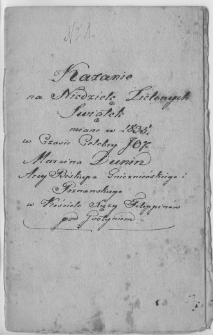 N. 1.
Kazanie
na Niedzielę Zielonych
Świątek
miane w r. 1838.
w Czasie Celebry JO.
Marcina Dunin
Arcy Biskupa Gnieźnieńskiego i
Poznańskiego
w Kościele Xęży Filippinów
pod Gostyniem